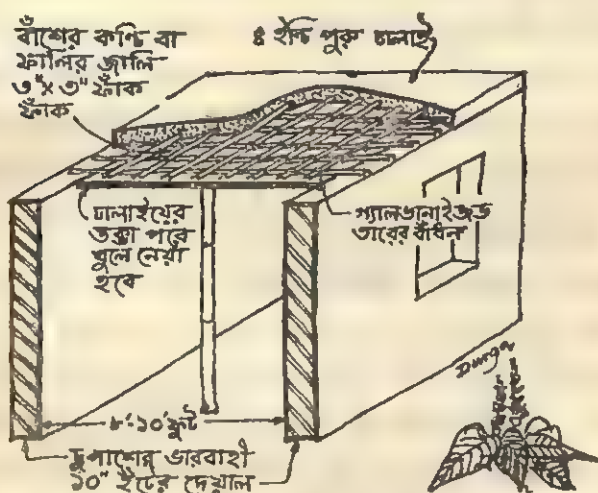 বাঁশের কঞ্চি বা
ফালির জালি
৩"x ৩" ফাঁক
ফাঁক
৪ ইঞ্চি পুরু ঢালাই
ঢালাইয়ের
তক্তা পরে
খুলে নেয়া
হবে
গ্যালভানাইজড
তারের বাঁধন
৮'-১০' ফুট
দুপাশের ভারবাহী
১০" ইটের দেয়াল